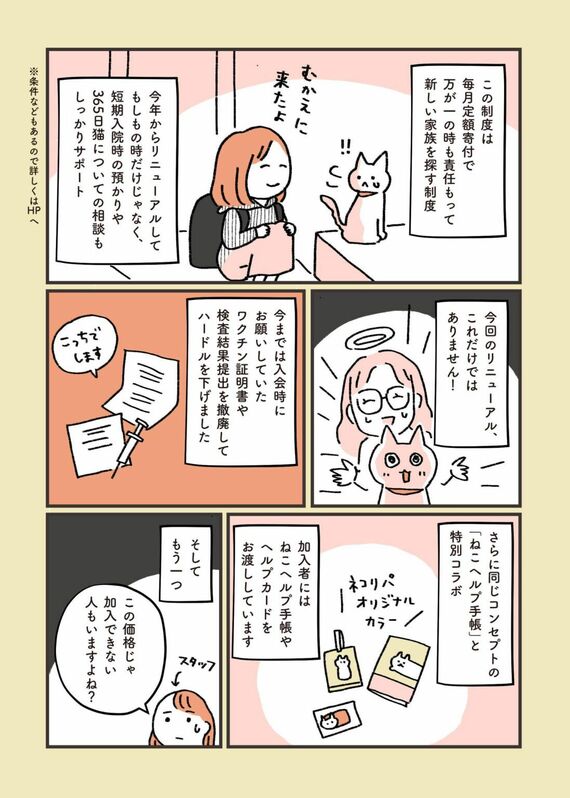 この制度は
毎月定額寄付で
万が一の時も責任もって
新しい家族を探す制度
!!
むかえに
来たよ
今年からリニューアルして
もしもの時だけじゃなく、
短期入院時の預かりや
365日猫についての相談も
しっかりサポート
※条件などもあるので詳しくはHPへ
今回のリニューアル、
これだけでは
ありません!
今までは入会時に
お願いしていた
ワクチン証明書や
検査結果提出を撤廃して
ハードルを下げました
こっちで
します
さらに同じコンセプトの
「ねこヘルプ手帳」と
特別コラボ
ネコリパ
オリジナル
カラー
加入者には
ねこヘルプ手帳や
ヘルプカードを
お渡ししています
そして
もう一つ
スタッフ
この価格じゃ
加入できない
人もいますよね?